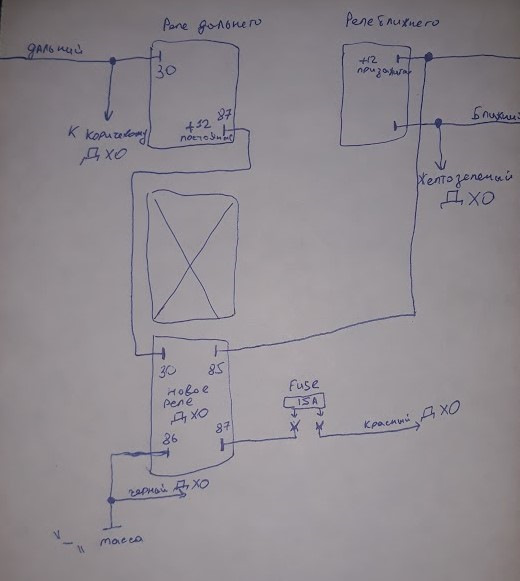 Реле дальнего
Реле ближнего
дальний
30
+12
призажиг
87
+12
постоянн
К коричневому
ДХО
Ближний
Желтозеленый
ДХО
30
85
Новое
реле
ДХО
86
87
Fuse
15А
красный ДХО
черный ДХО
"-"
масса